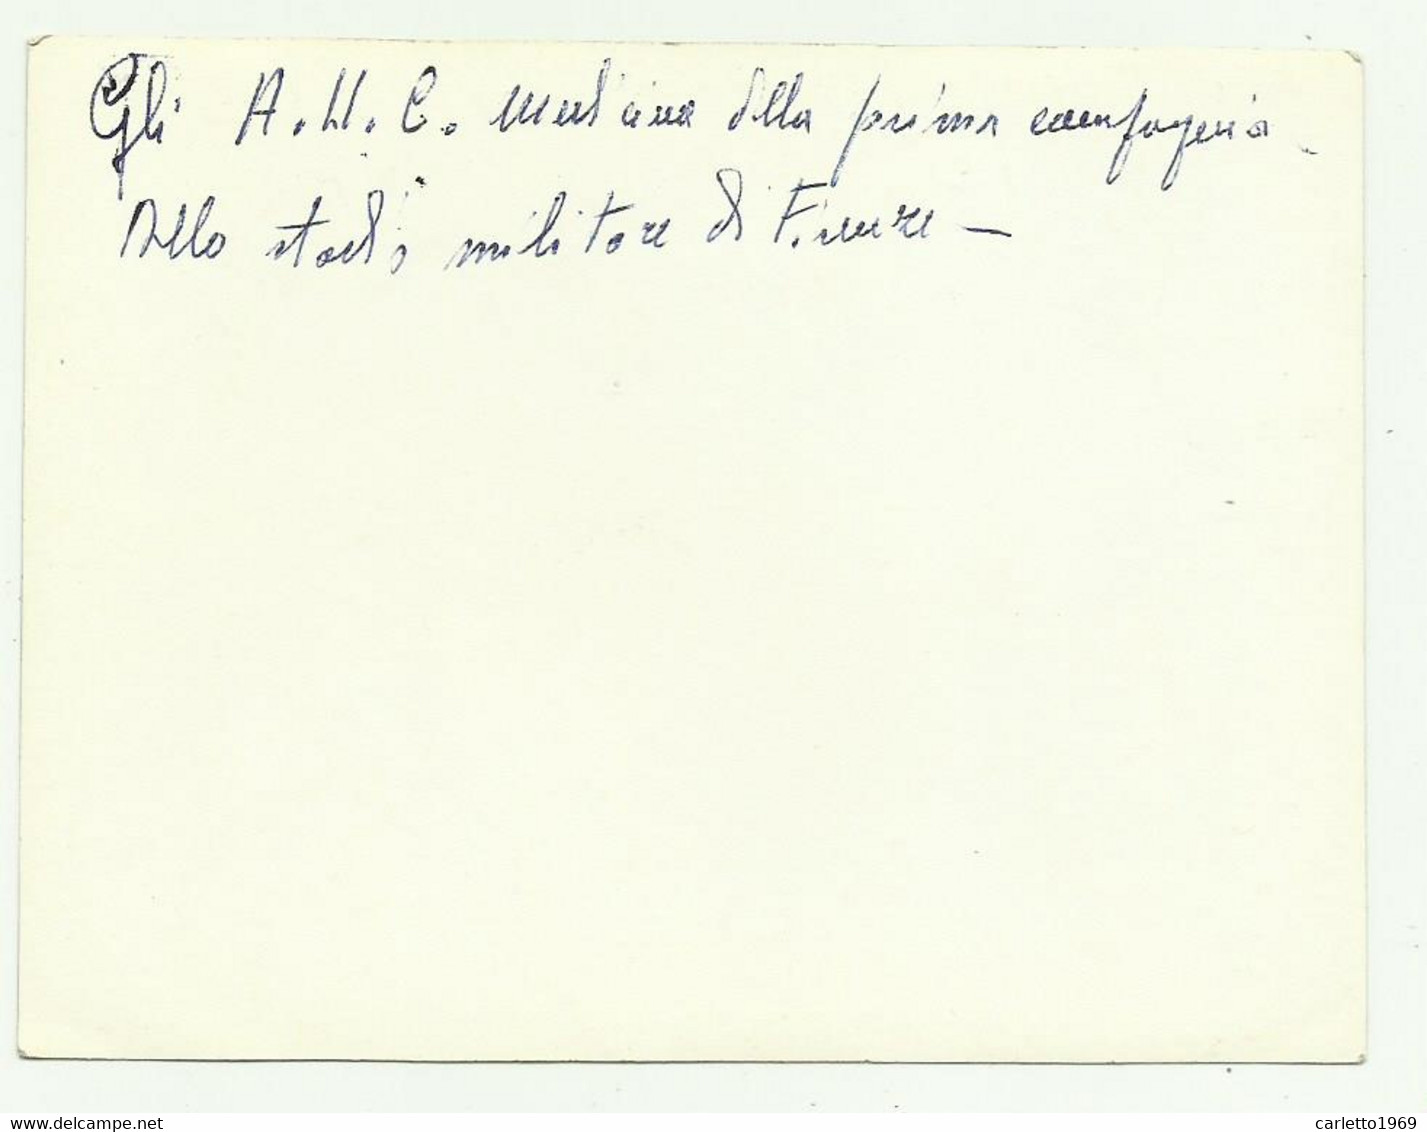 Gli A.U.C. medicina della prima compagnia
dello stadio militare di Firenze —
www.delcampe.net
carletto1969